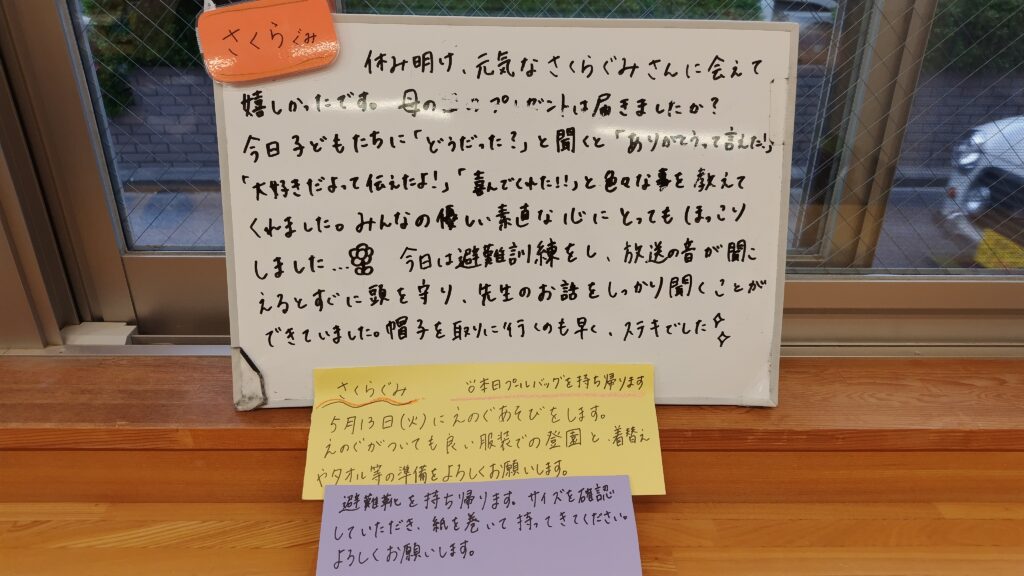 さくらぐみ
休み明け、元気なさくらぐみさんに会えて
嬉しかったです。母の プレゼントは届きましたか?
今日子どもたちに「どうだった?」と聞くと「ありがとうって言えた!」
「大好きだよって伝えたよ!」「喜んでくれた!!」と色々な事を教えて
くれました。みんなの優しい素直な心にとってもほっこり
しました… 今日は避難訓練をし、放送の音が聞こ
えるとすぐに頭を守り、先生のお話をしっかり聞くことが
できていました。帽子を取りに行くのも早く、ステキでした
さくらぐみ ☆本日プールバッグを持ち帰ります
5月13日(火)にえのぐあそびをします。
えのぐがついても良い服装での登園と、着替え
やタオル等の準備をよろしくお願いします。
避難靴を持ち帰ります。サイズを確認
していただき、紙を巻いて持ってきてください。
よろしくお願いします。